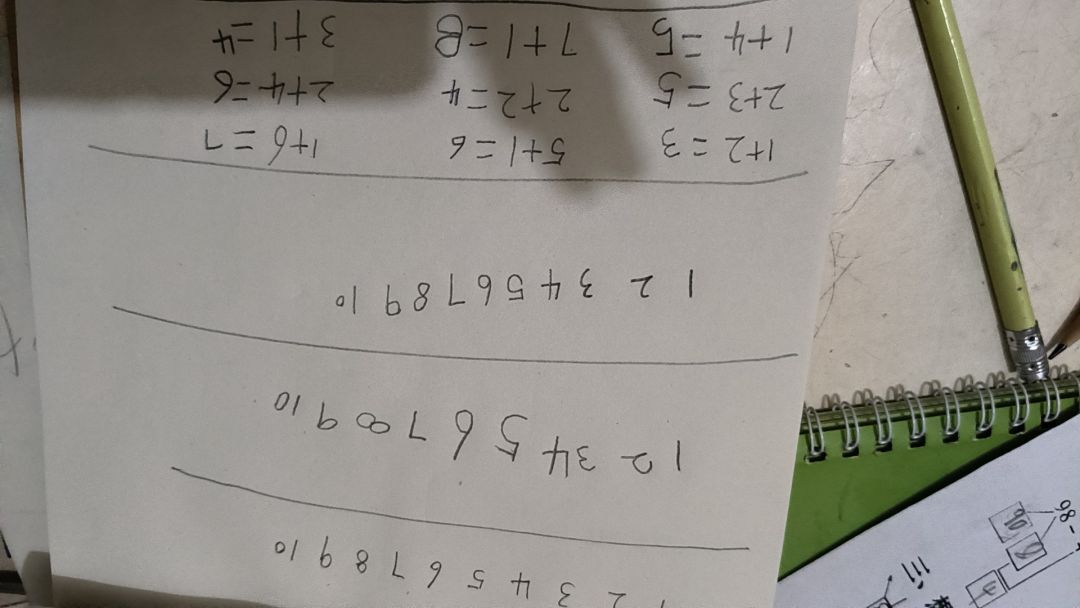 1 2 3 4 5 6 7 8 9 10
1 2 3 4 5 6 7 8 9 10
1 2 3 4 5 6 7 8 9 10
1+2=3 5+1=6 1+6=7
2+3=5 2+2=4 2+4=6
1+4=5 7+1=8 3+1=4